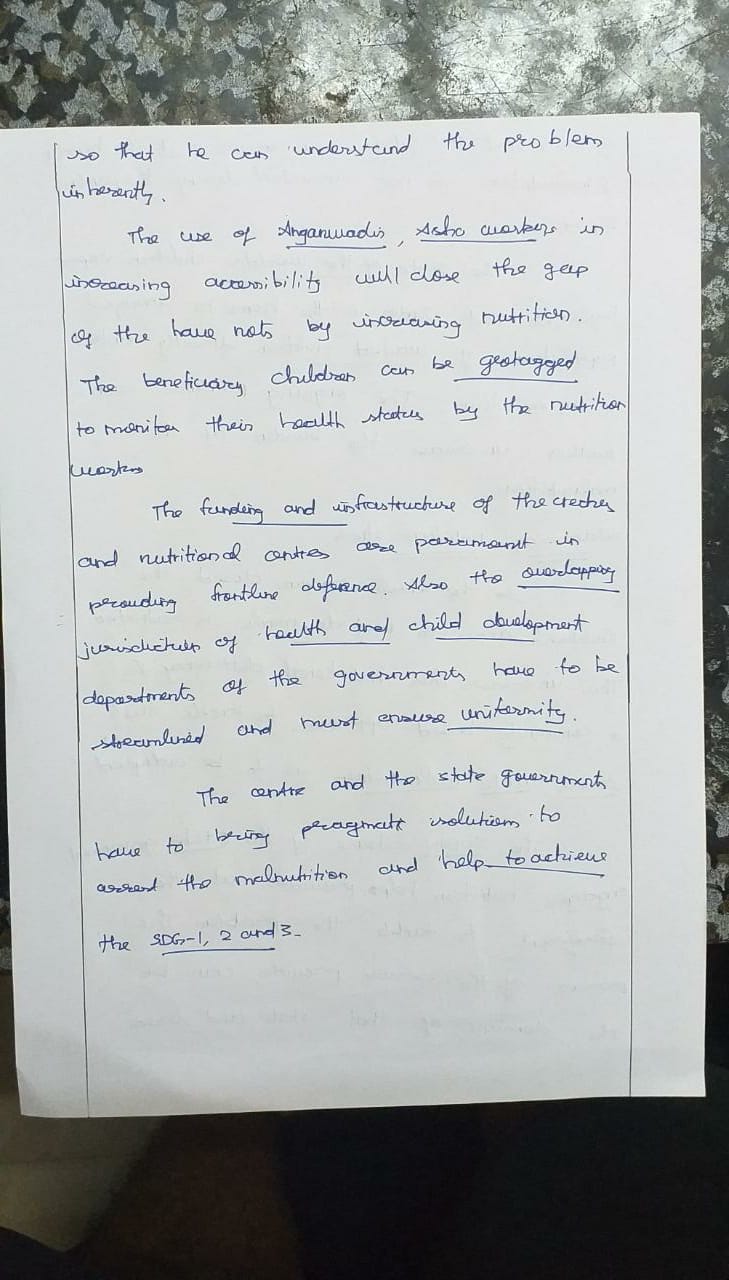 so that he can understand the problem
inherently.
The use of Anganwadis, Asha workers in
increasing accessibility will close the gap
of the have nots by increasing nutrition.
The beneficiary children can be geotagged
to monitor their health status by the nutrition
workers
The funding and infrastructure of the creches
and nutritional centres are paramount in
providing frontline deference. Also the overlapping
jurisdiction of health and child development
departments of the governments have to be
streamlined and must ensure uniformity.
The centre and the state governments
have to bring pragmatic solutions to
arrest the malnutrition and help to achieve
the SDG-1, 2 and 3.